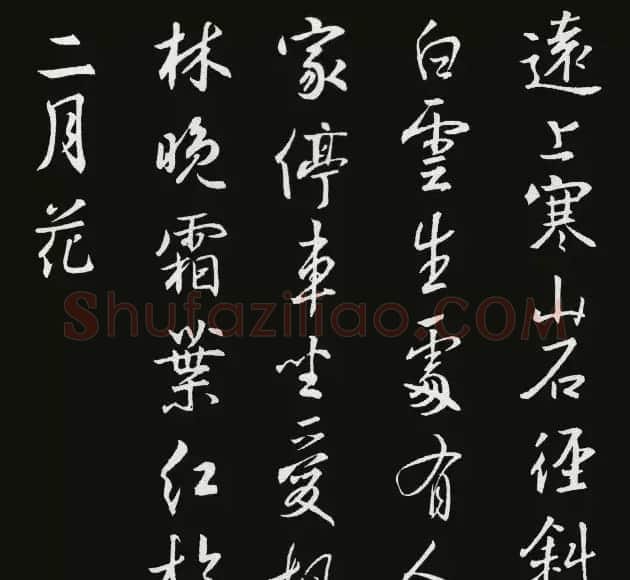 遠上寒山石徑斜
白雲生處有人
家停車坐愛楓
林晚霜葉紅於
二月花
Shufaziliao.COM